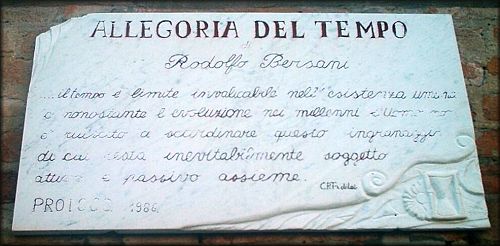 ALLEGORIA DEL TEMPO
di
Rodolfo Bersani
....il tempo è limite invalicabile nell'esistenza umana
e nonostante l'evoluzione nei millenni l'Uomo no
è riuscito a scardinare questo ingranaggio
di cui resta inevitabilmente soggetto
attivo e passivo assieme.
PROLOCO 1986